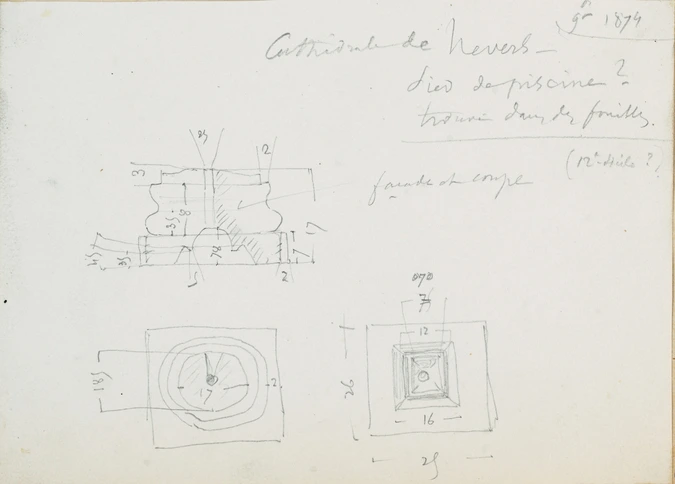 9bre 1874
Cathédrale de Nevers –
Pied de piscine ?
trouvé dans des fouilles.
(12e siècle ?)
façade et coupe
25
2
3
35
8
17
45
35
78
7
5
2
185
17
2
070
7
12
26
16
25